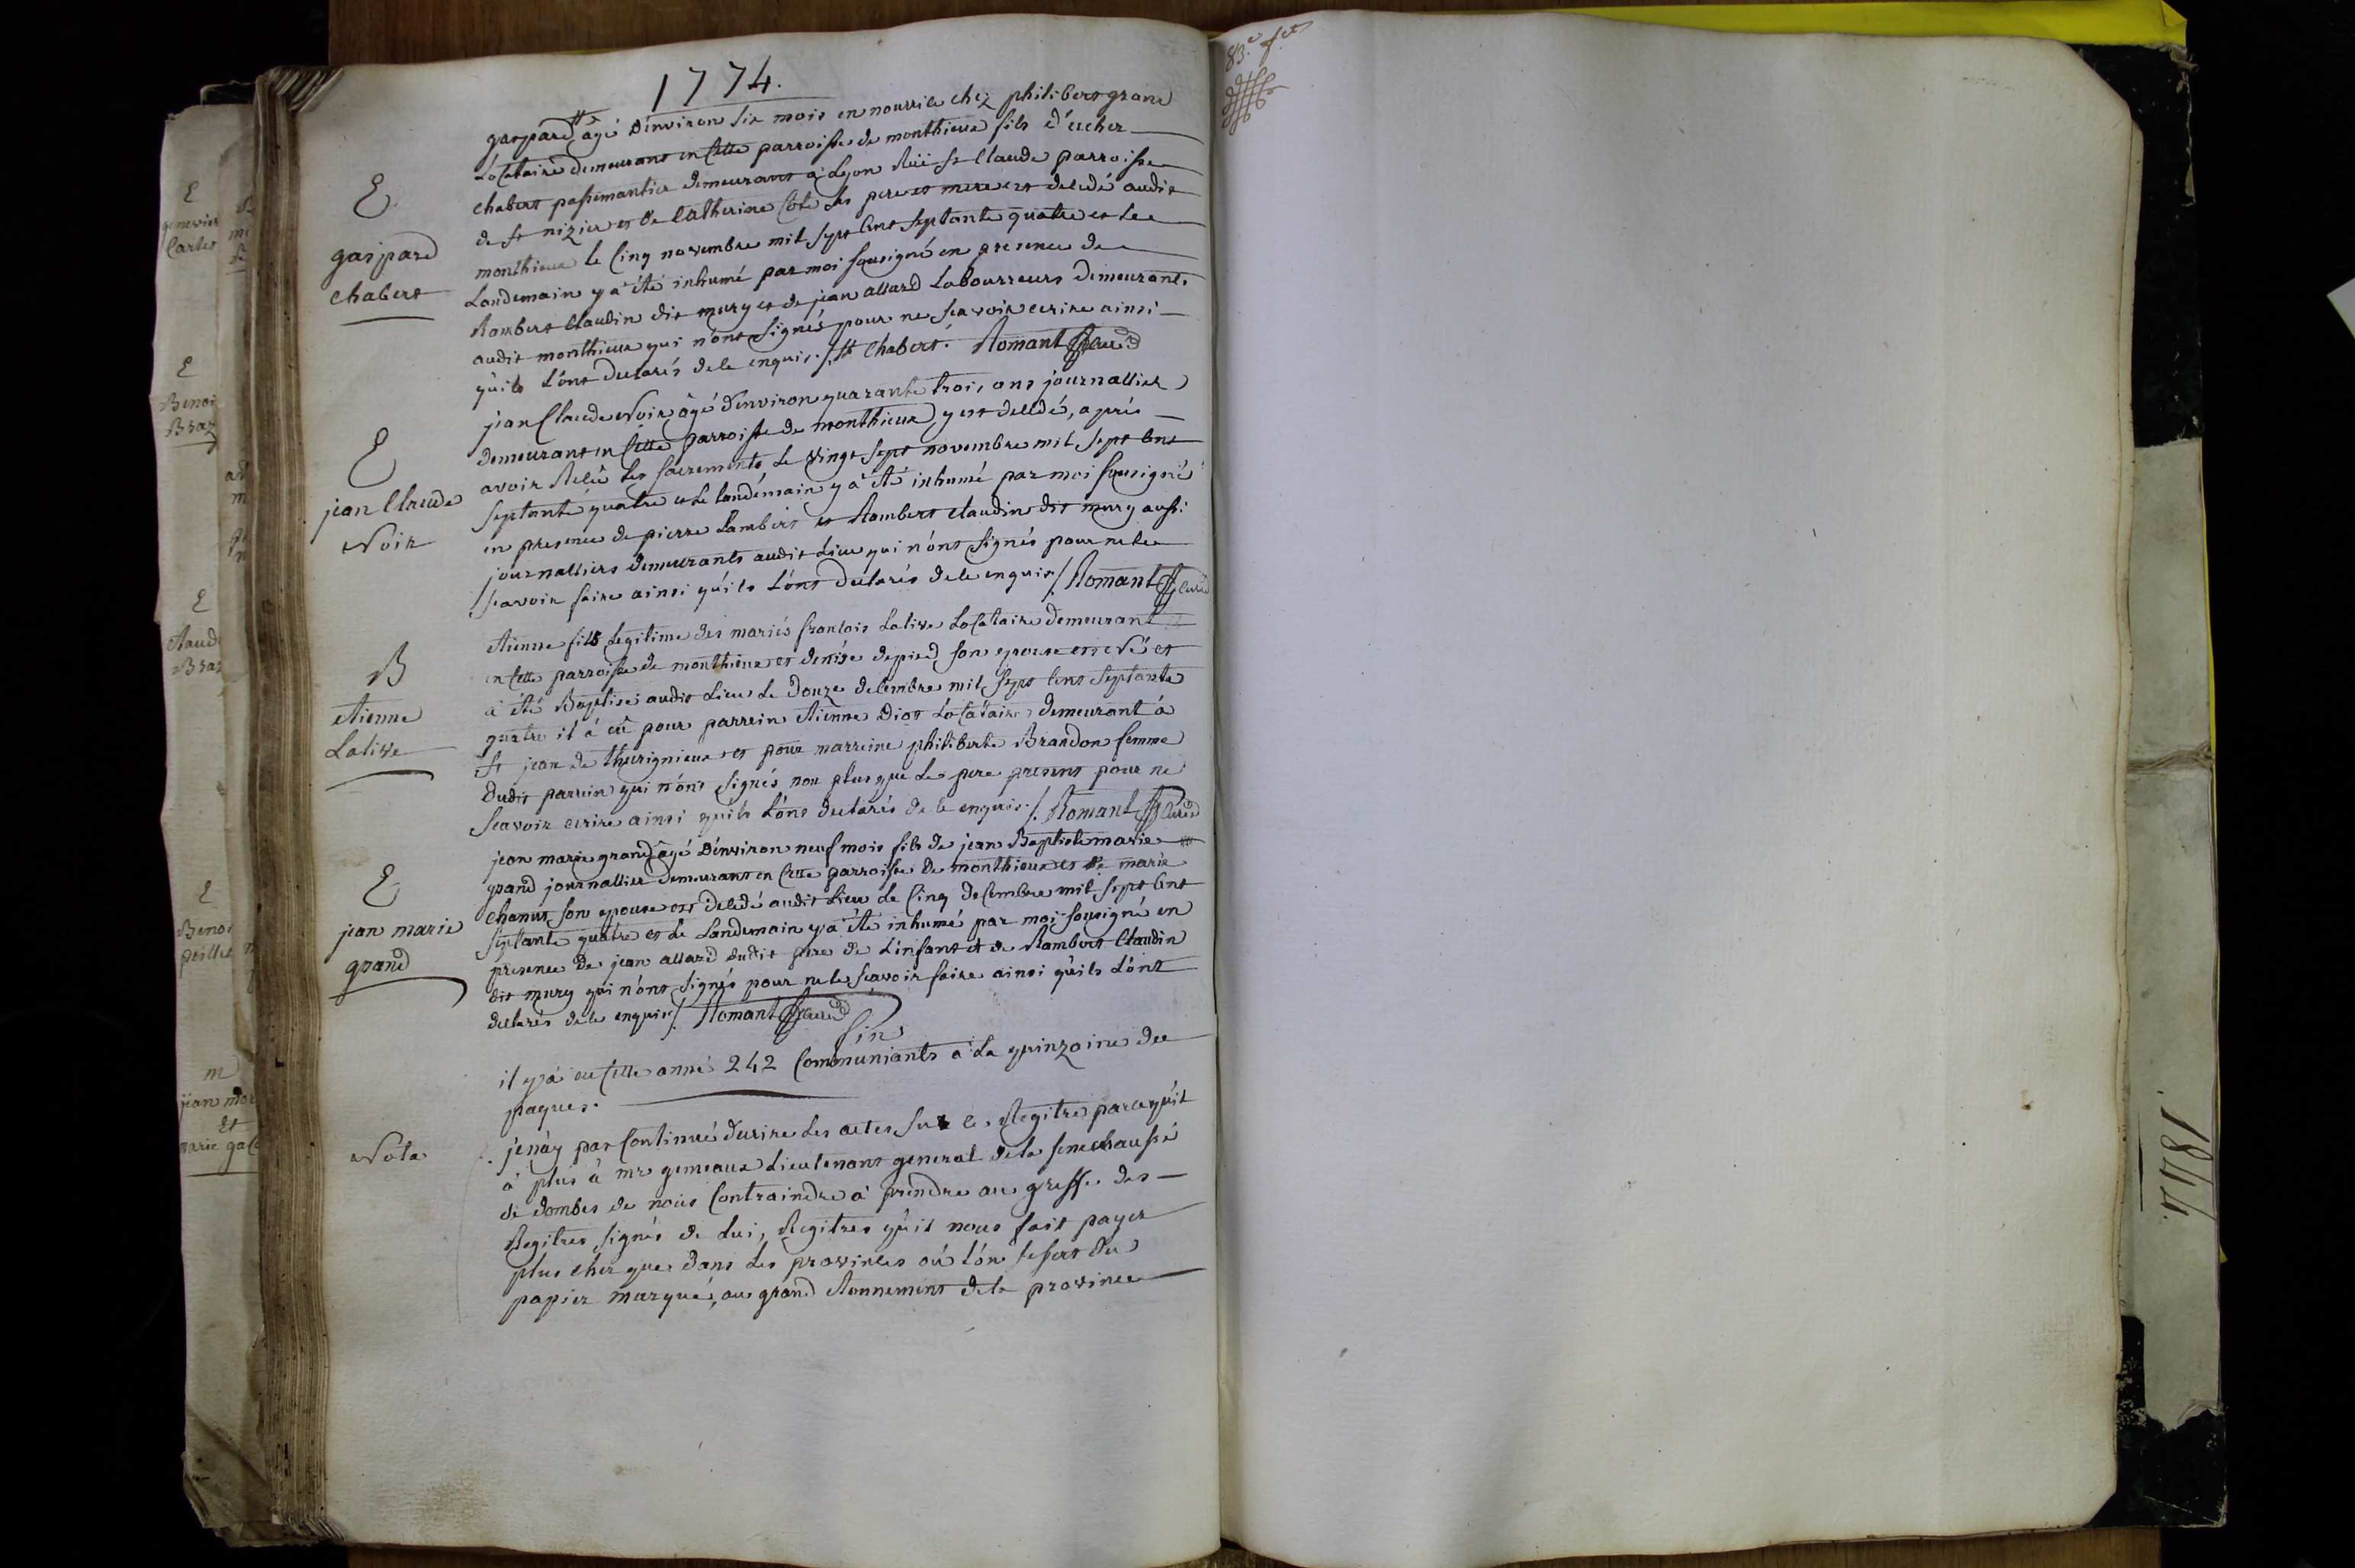 1774.
E
gaspard
chabert
gaspard # agé d'environ six mois en nourrice chez philibert grand
Locataire demeurant en cette parroisse de monthieux fils d'eucher
chabert passemantier demeurant à Lyon Rüe st Claude parroisse
de st nizier et de Catherine Cote ses pere et mere est decedé audit
monthieux le cinq novembre mil sept cent septante quatre et le
Landemain y a été inhumé par moi sousigné en presence de
Rambert Claudin dit mury et de jean allard Labourreurs demeurants
audit monthieux qui n'ont signés pour ne sçavoir ecrire ainsi
qu'ils L'ont declarés de ce enquis ./. # chabert. Romant curé
E
jean Claude
Noir
jean Claude Noir âgé d'environ quarante trois ans journallier
demeurant en cette parroisse de monthieux y est decedé, aprés
avoir Reçû les sacrements, Le vingt sept novembre mil sept cent
septante quatre et le landemain y a été inhumé par moi sousigné
en presence de pierre Lambert et Rambert claudin dit mury aussi
journalliers demeurants audit Lieu qui n'ont signés pour ne le
sçavoir faire ainsi qu'ils L'ont declarés de ce enquis ./. Romant curé
B
etienne
Lative
etienne fils Legitime des mariés francois Lative Locataire demeurant
en cette parroisse de monthieux et denise depied son epouse est né et
a été Baptisé audit Lieu Le Douze decembre mil sept cent septante
quatre il a eû pour parrein etienne Diot Locataire demeurant à
st jean de thurignieux et pour marreine philiberte Brandon femme
dudit parrein qui n'ont signés non plus que Le pere present pour ne
sçavoir ecrire ainsi qu'ils L'ont declarés de ce enquis ./. Romant curé
E
jean marie
grand
jean marie grand âgé d'environ neuf mois fils de jean Baptiste marie
grand journallier demeurant en cette parroisse de monthieux et de marie
Chanut son epouse est decedé audit Lieu Le cinq decembre mil sept cent
septante quatre et Le Landemain y a été inhumé par moi sousigné en
presence de jean allard dudit pere de L'enfant et de Rambert Claudin
dit mury qui n'ont signés pour ne le sçavoir faire ainsi qu'ils L'ont
declarés de ce enquis ./. Romant curé
fin
il y a eu cette anné 242 Communiants à La quinzaine de
paques.
Nota
je n'ay pas Continué d'ecrire Les actes sur ce Regitre parcequ'il
a plus à mr gemeaux Lieutenant general de la senechaussé
de dombes de nous Contraindre à prendre au greffe des
Regitres signés de Lui, Regitres qu'il nous fait payer
plus cher que dans Les provinces où L'on se sert du
papier marqué, au grand etonnement de la province
83.e f.et
1844
E
genevier
Carles
E
Benoi
Braz
E
Claud
Braz
E
Benoi
peillet
m
jean mar
et
marie gac